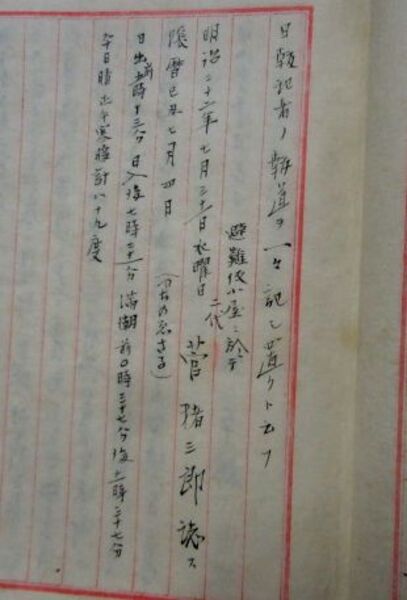 日報記者ノ報道ヲ一々記シ置クト云フ
避難仮小屋ニ於テ
明治二十二年七月三十一日水曜日 二代 菅 猪三郎 誌ス
陰暦己丑七月四日 (つちのえさる)
日出前五時十三分 日入後七時 分 満潮前〇時三十七分後 時 十七分
今日晴 正午寒暖計八十九度